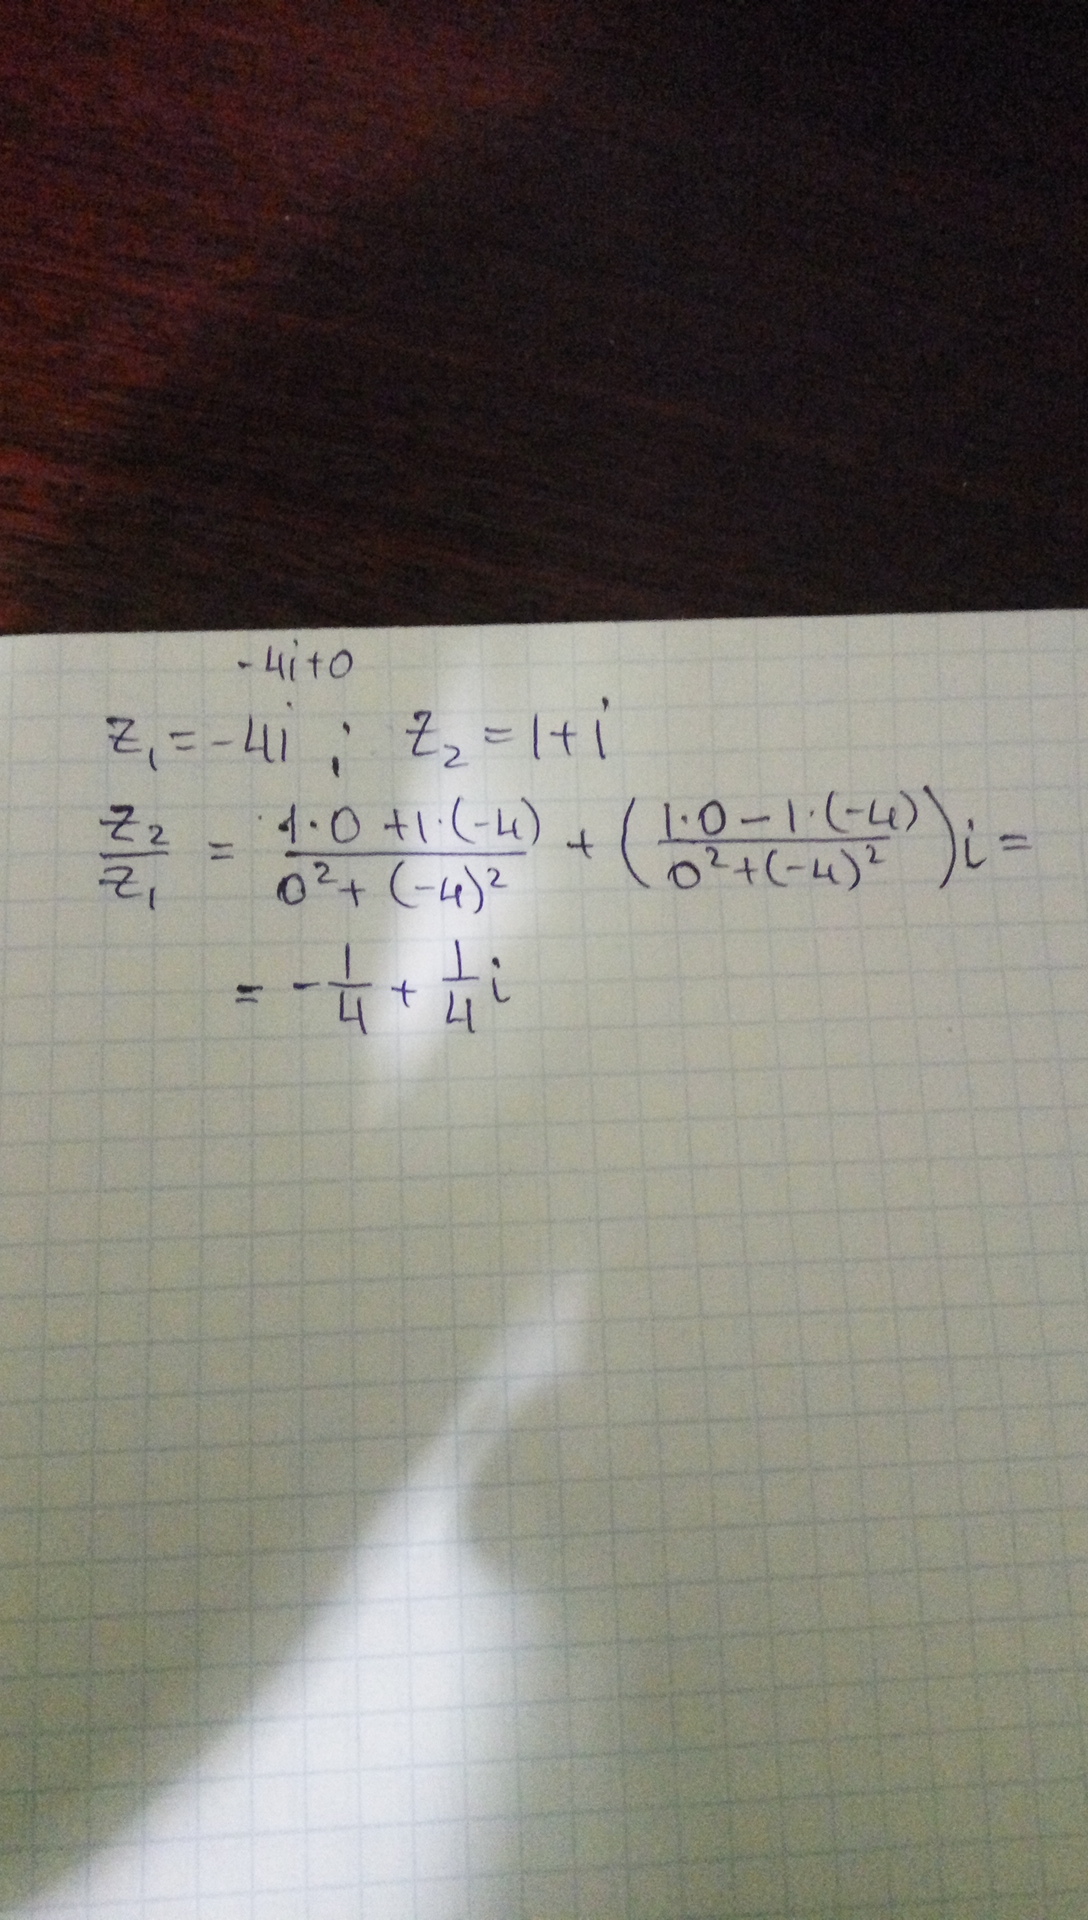 -4i+0
z₁ = -4i ; z₂ = 1+i
z₂/z₁ = (1·0+1·(-4))/(0²+(-4)²) + ((1·0-1·(-4))/(0²+(-4)²))i =
= -1/4 + 1/4 i